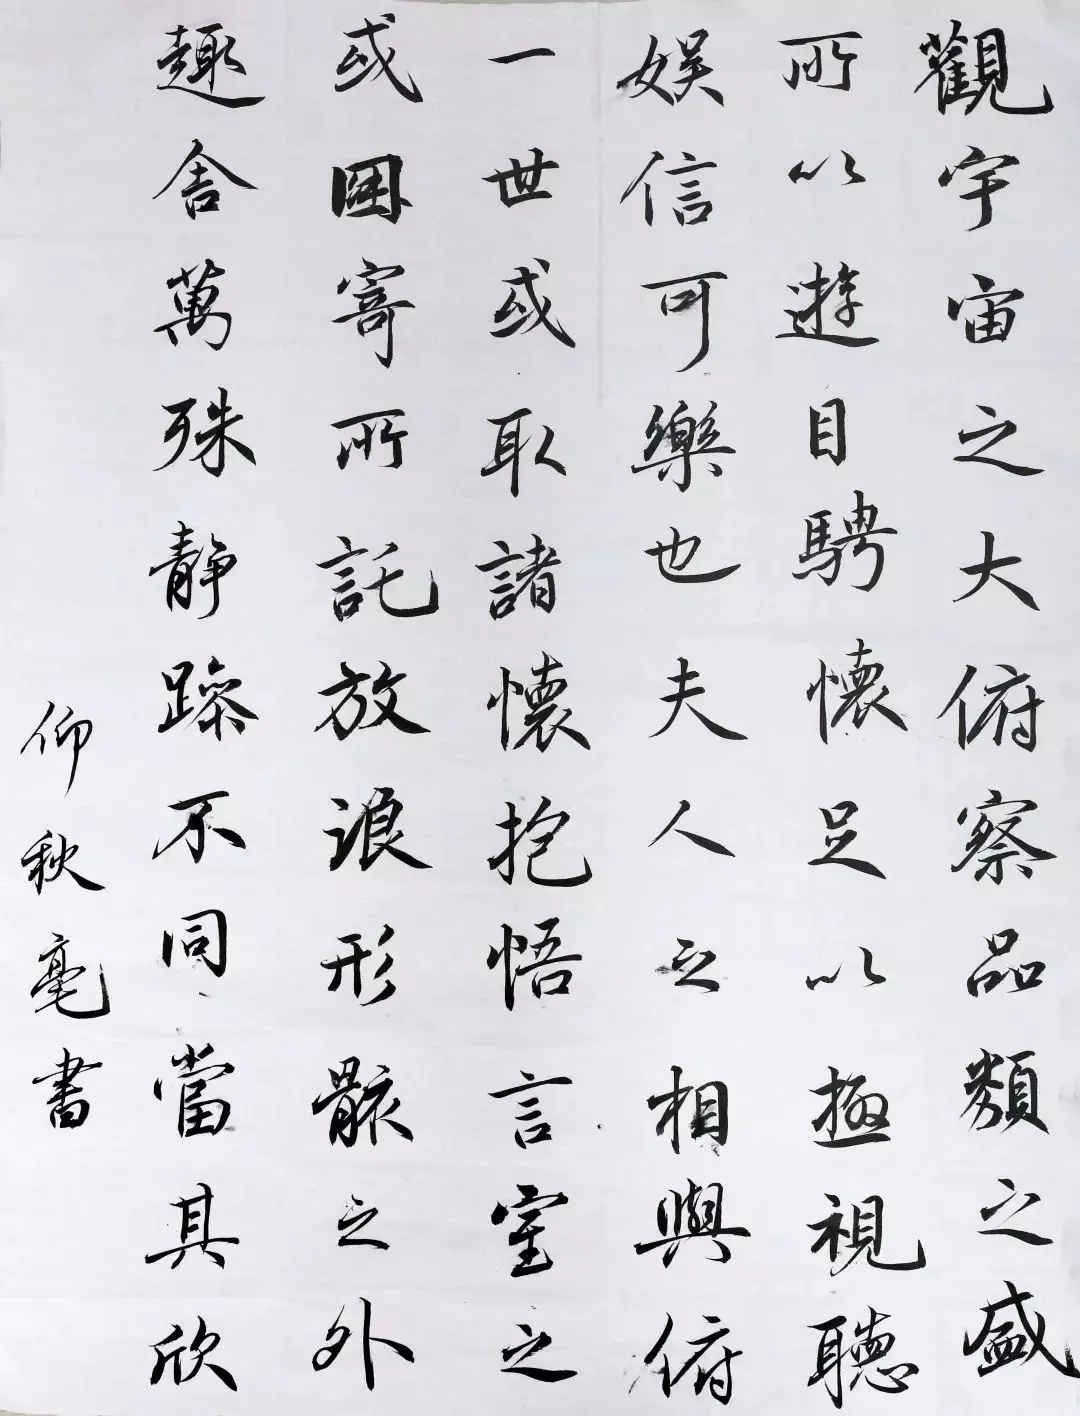 觀宇宙之大俯察品類之盛
所以遊目騁懷足以極視聽
娛信可樂也夫人之相與俯
一世或取諸懷抱悟言室之
或因寄所託放浪形骸之外
趣舍萬殊靜躁不同當其欣
仰秋毫書